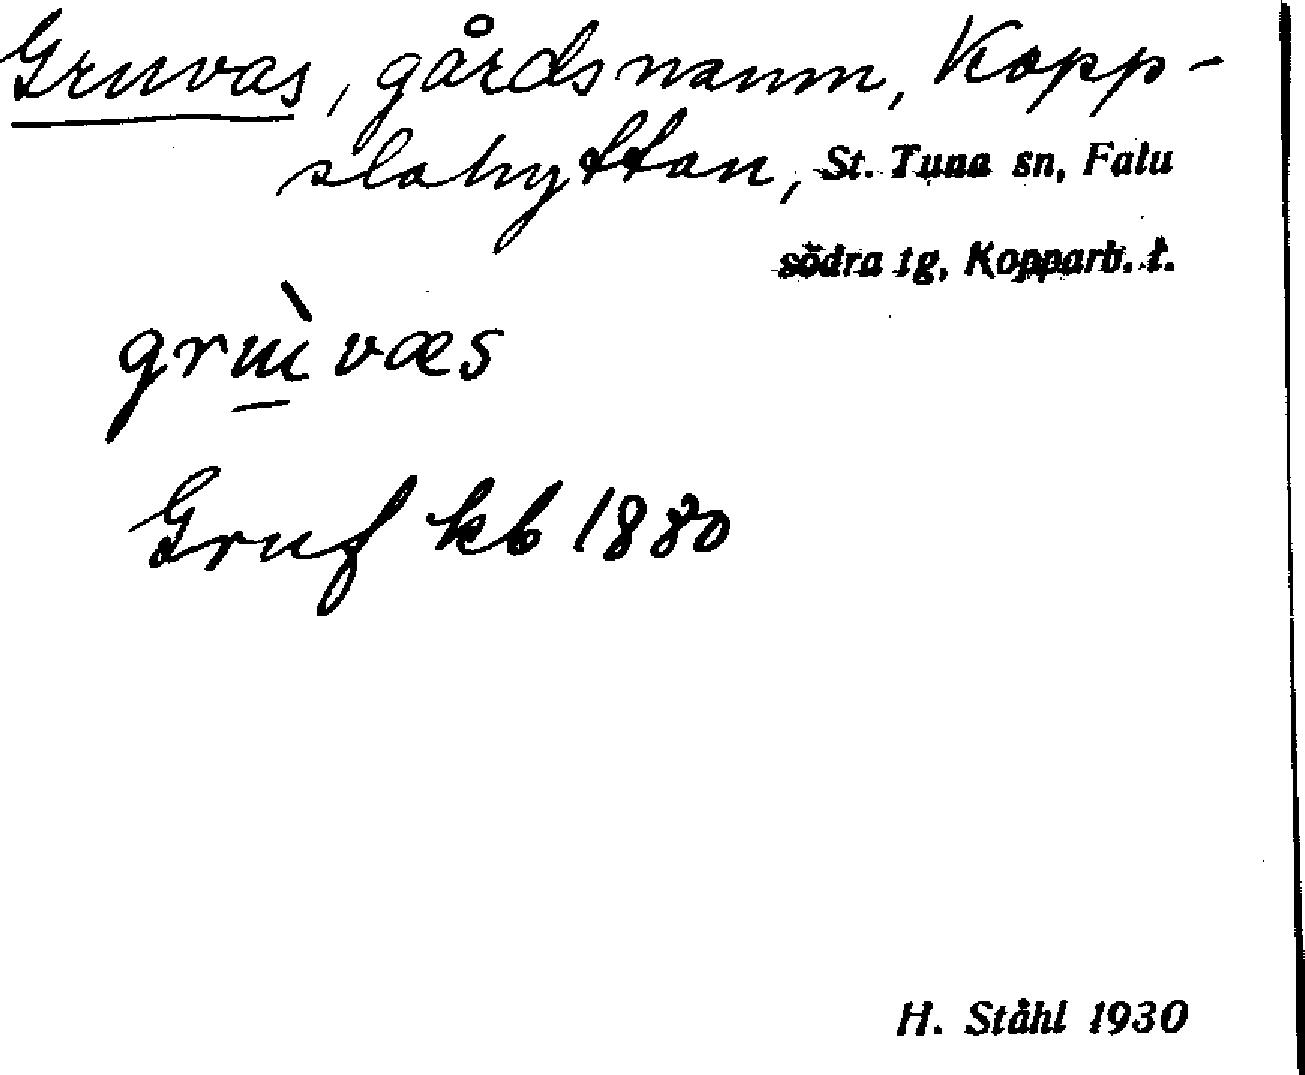 Gruvas, gårdsnamn, Kopp-
slahyttan, St. Tuna sn, Falu
södra tg, Kopparb. l.
Gruf kb 1880
H. Ståhl 1930